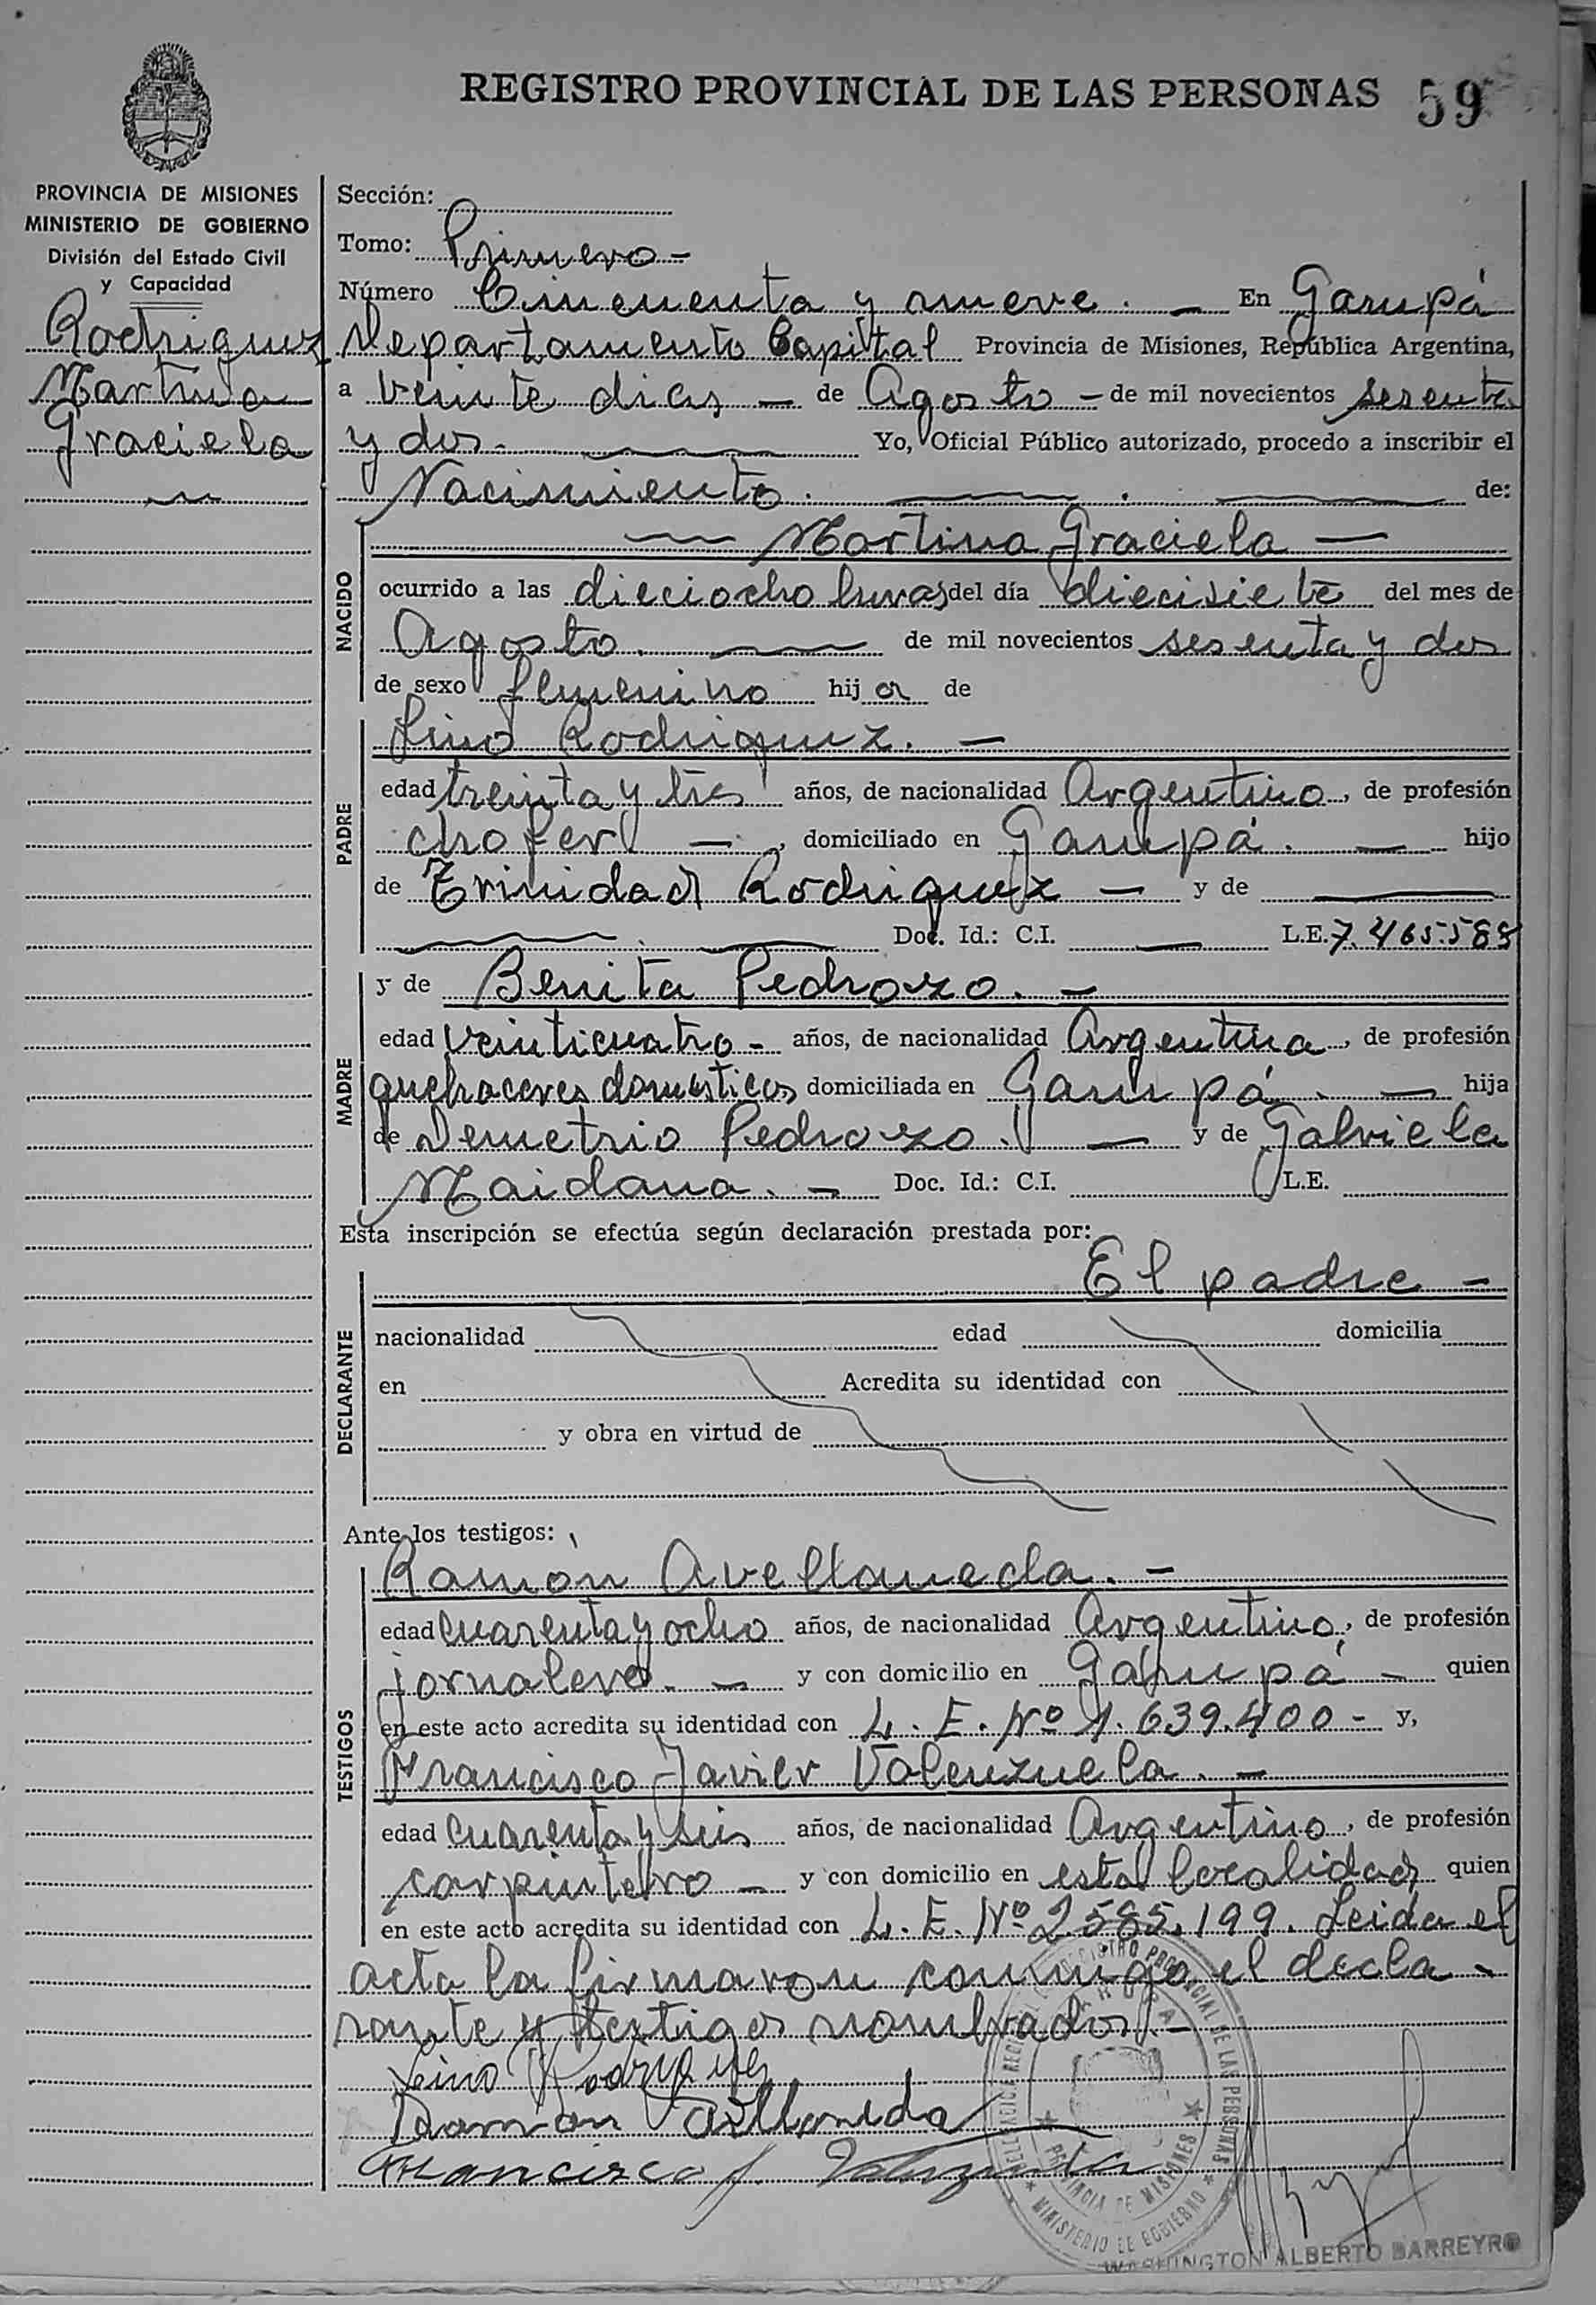 REGISTRO PROVINCIAL DE LAS PERSONAS 59
PROVINCIA DE MISIONES
MINISTERIO DE GOBIERNO
División del Estado Civil
y Capacidad
Rodriguez
Martina
Graciela
Sección:
Tomo: Primero -
Número Cincuenta y nueve. - En Garupá
Departamento Capital Provincia de Misiones, República Argentina,
a veinte dias - de Agosto - de mil novecientos sesenta
y dos. Yo, Oficial Público autorizado, procedo a inscribir el
Nacimiento. de:
NACIDO
Martina Graciela -
ocurrido a las dieciocho horas del día diecisiete del mes de
Agosto. de mil novecientos sesenta y dos
de sexo femenino hija de
PADRE
Lino Rodriguez. -
edad treinta y tres años, de nacionalidad Argentino, de profesión
chofer -, domiciliado en Garupá. - hijo
de Trinidad Rodriguez - y de
Doc. Id.: C.I. - L.E. 7.465.588
MADRE
y de Benita Pedrozo. -
edad veinticuatro - años, de nacionalidad Argentina, de profesión
quehaceres domésticos domiciliada en Garupá. - hija
de Demetrio Pedrozo. - y de Gabriela
Maidana. - Doc. Id.: C.I. L.E.
Esta inscripción se efectúa según declaración prestada por:
DECLARANTE
El padre -
nacionalidad edad domicilia
en Acredita su identidad con
y obra en virtud de
Ante los testigos:
TESTIGOS
Ramón Avellaneda. -
edad cuarenta y ocho años, de nacionalidad Argentino, de profesión
jornalero. - y con domicilio en Garupá - quien
en este acto acredita su identidad con L.E. Nº 1.639.400 - y,
Francisco Javier Valenzuela. -
edad cuarenta y seis años, de nacionalidad Argentino, de profesión
carpintero - y con domicilio en esta localidad quien
en este acto acredita su identidad con L.E. Nº 2.585.199. Leida el
acta la firmaron conmigo el decla-
rante y testigos nombrados. -
Lino Rodriguez
Ramon Avellaneda
Francisco J. Valenzuela
REGISTRO PROVINCIAL DE LAS PERSONAS
GARUPA
PROVINCIA DE MISIONES
MINISTERIO DE GOBIERNO
WASHINGTON ALBERTO BARREYRO